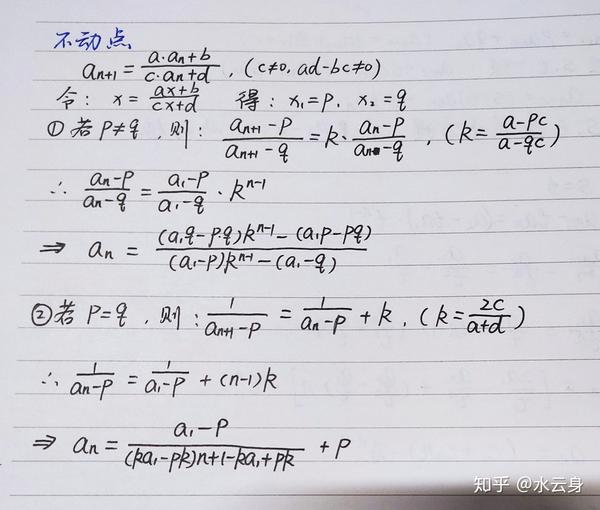 不动点
aₙ₊₁ = (a·aₙ+b)/(c·aₙ+d) , (c≠0, ad-bc≠0)
令: x = (ax+b)/(cx+d) 得: x₁=p, x₂=q
① 若 p≠q, 则: (aₙ₊₁-p)/(aₙ₊₁-q) = k·(aₙ-p)/(aₙ-q) , (k = (a-pc)/(a-qc))
∴ (aₙ-p)/(aₙ-q) = (a₁-p)/(a₁-q) · kⁿ⁻¹
⇒ aₙ = ((a₁q-p·q)kⁿ⁻¹-(a₁p-pq))/((a₁-p)kⁿ⁻¹-(a₁-q))
② 若 p=q, 则: 1/(aₙ₊₁-p) = 1/(aₙ-p) + k, (k = 2c/(a+d))
∴ 1/(aₙ-p) = 1/(a₁-p) + (n-1)k
⇒ aₙ = (a₁-p)/((ka₁-pk)n+1-ka₁+pk) + p
知乎 @水云身